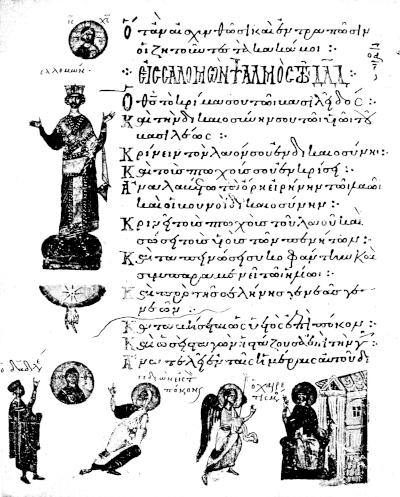 IC XC
ὅταν αἰσχυνθῶσι καὶ ἐντραπῶσιν
οἱ ζητοῦντες τὰ κακά μοι :·
σαλομών
ΕΙΣ ΣΑΛΟΜΩΝ ΨΑΛΜΟΣ ΤΩ ΔΑΔ
Ὁ ΘΣ τὸ κρίμα σου τῶ βασιλεῖ δός :·
Κ(αὶ) τὴν δικαιοσύνην σου τῶ υἱῶ τοῦ
βασιλέως :·
Κρίνειν τὸν λαόν σου ἐν δικαιοσύνη :·
Κ(αὶ) τοὺς πτωχούς σου ἐν κρίσει :·
Ἀναλαβέτω τὰ ὄρη εἰρήνην τῶ λαῶ
καὶ οἱ βουνοὶ δικαιοσύνην :·
Κρινεῖ τοὺς πτωχοὺς τοῦ λαοῦ καὶ
σώσει τοὺς υἱοὺς τῶν πενήτων :·
Κ(αὶ) ταπεινώσει συκοφάντην καὶ
συμπαραμενεῖ τῶ ἡλίω :·
Κ(αὶ) πρὸ τῆς σελήνης γενεὰς γε
νεῶν :·
Κ(αὶ) καταβήσεται ὡς ὑετὸς ἐπὶ πόκον :·
Κ(αὶ) ὡσεὶ σταγὼν ἡ στάζουσα ἐπὶ τὴν γῆν :·
Ἀνατελεῖ ἐν ταῖς ἡμέραις αὐτοῦ δι
ὁ χαιρετισμός